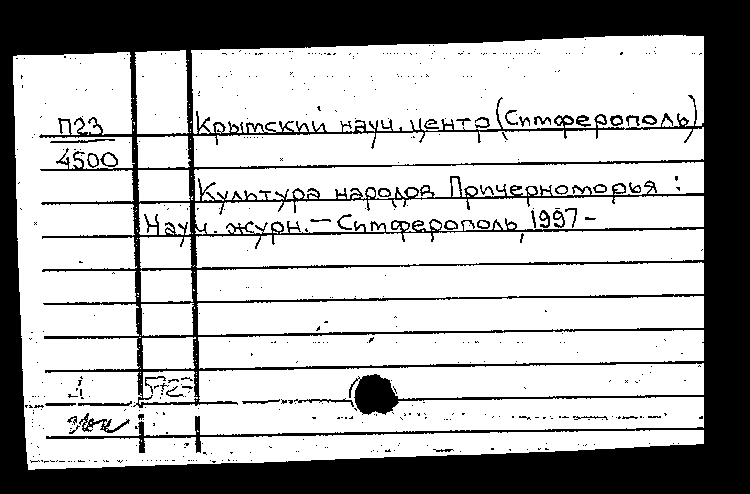 П23 Крымский науч. центр (Симферополь).
4500
Культура народов Причерноморья :
Науч. журн. — Симферополь, 1997 -
1 5727